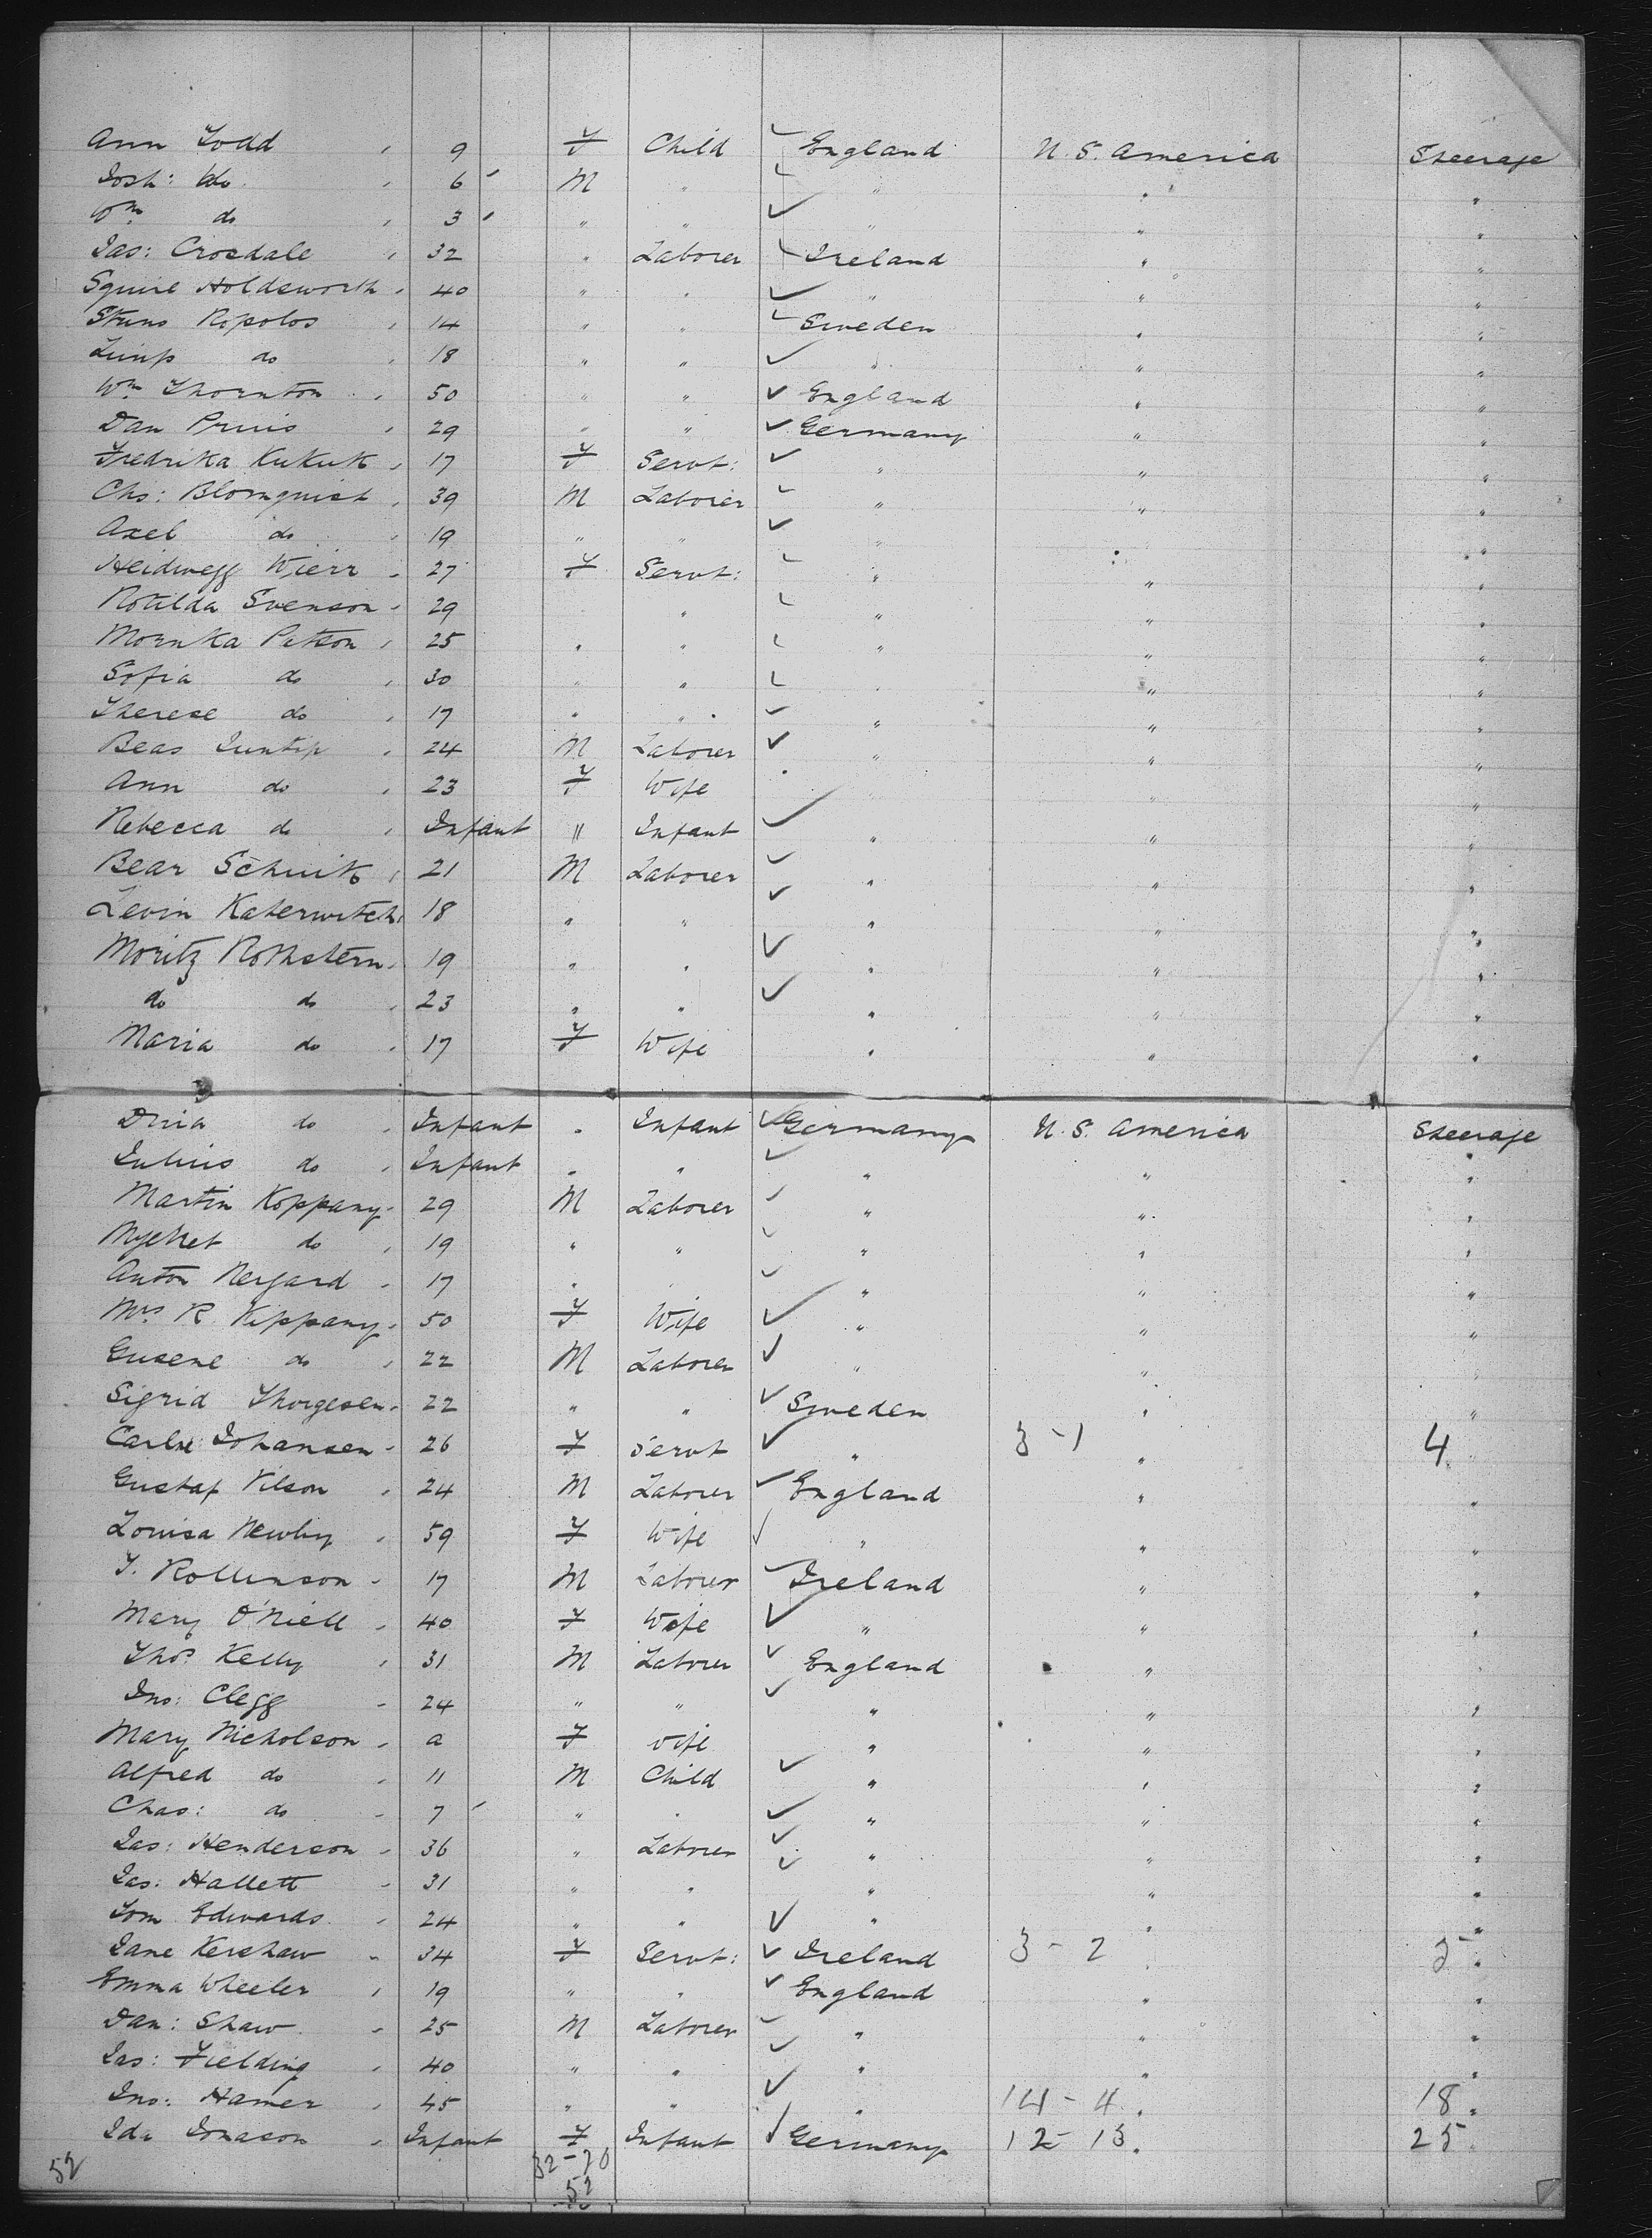 Ann Todd " 9 F Child England U.S. America Steerage
Josh: do " 6 M " " " "
Wm do " 3 " " " " "
Jas: Crosdale " 32 " Laborer Ireland " "
Squire Holdsworth " 40 " " " " "
Ropolos " 14 " " Sweden " "
do " 18 " " " " "
Wm Thornton " 50 " " England " "
Dan Prins " 29 " " Germany " "
Fredrika Kukuk " 17 F Servt: " " "
Chs: Blomquist " 39 M Laborer " " "
Axel do " 19 " " " " "
Heidwegg Wierr " 27 F Servt: " " "
Rotilda Svenson " 29 " " " " "
Mornka Patson " 25 " " " " "
Sofia do " 30 " " " " "
Therese do " 17 " " " " "
Beas " 24 M Laborer " " "
Ann do " 23 F Wife " " "
Rebecca do " Infant " Infant " " "
Bear " 21 M Laborer " " "
Levin Katerwitch " 18 " " " " "
Moritz Rothstern " 19 " " " " "
do do " 23 " " " " "
Maria do " 17 F Wife " " "
do " Infant " Infant Germany U.S. America Steerage
Julius do " Infant " " " " "
Martin Koppany " 29 M Laborer " " "
do " 19 " " " " "
Anton Nergard " 17 " " " " "
Mrs R Kippany " 50 F Wife " " "
Eugene do " 22 M Laborer " " "
Sigrid Thorgesen " 22 " " Sweden " "
Johansen " 26 F Servt " 3-1 " 4 "
Gustaf Nilson " 24 M Laborer England " "
Louisa Newby " 59 F Wife " " "
T. Rollinson " 17 M Laborer Ireland " "
Mary O'Niell " 40 F Wife " " "
Thos Kelly " 31 M Laborer England " "
Jno: Clegg " 24 " " " " "
Mary Nicholson " a F wife " " "
Alfred do " 11 M Child " " "
Chas: do " 7 " " " " "
Jas: Henderson " 36 " Laborer " " "
Jas: Hallett " 31 " " " " "
Tom Edwards " 24 " " " " "
Jane Kershaw " 34 F Servt: Ireland 3-2 " 5 "
Emma Wheeler " 19 " " England " "
Dan: Shaw " 25 M Laborer " " "
Jas: Fielding " 40 " " " " "
Jno: Hamer " 45 " " " 14-4 " 18 "
Ida Jonason " Infant F Infant Germany 12-13 " 25
52 32-20
52